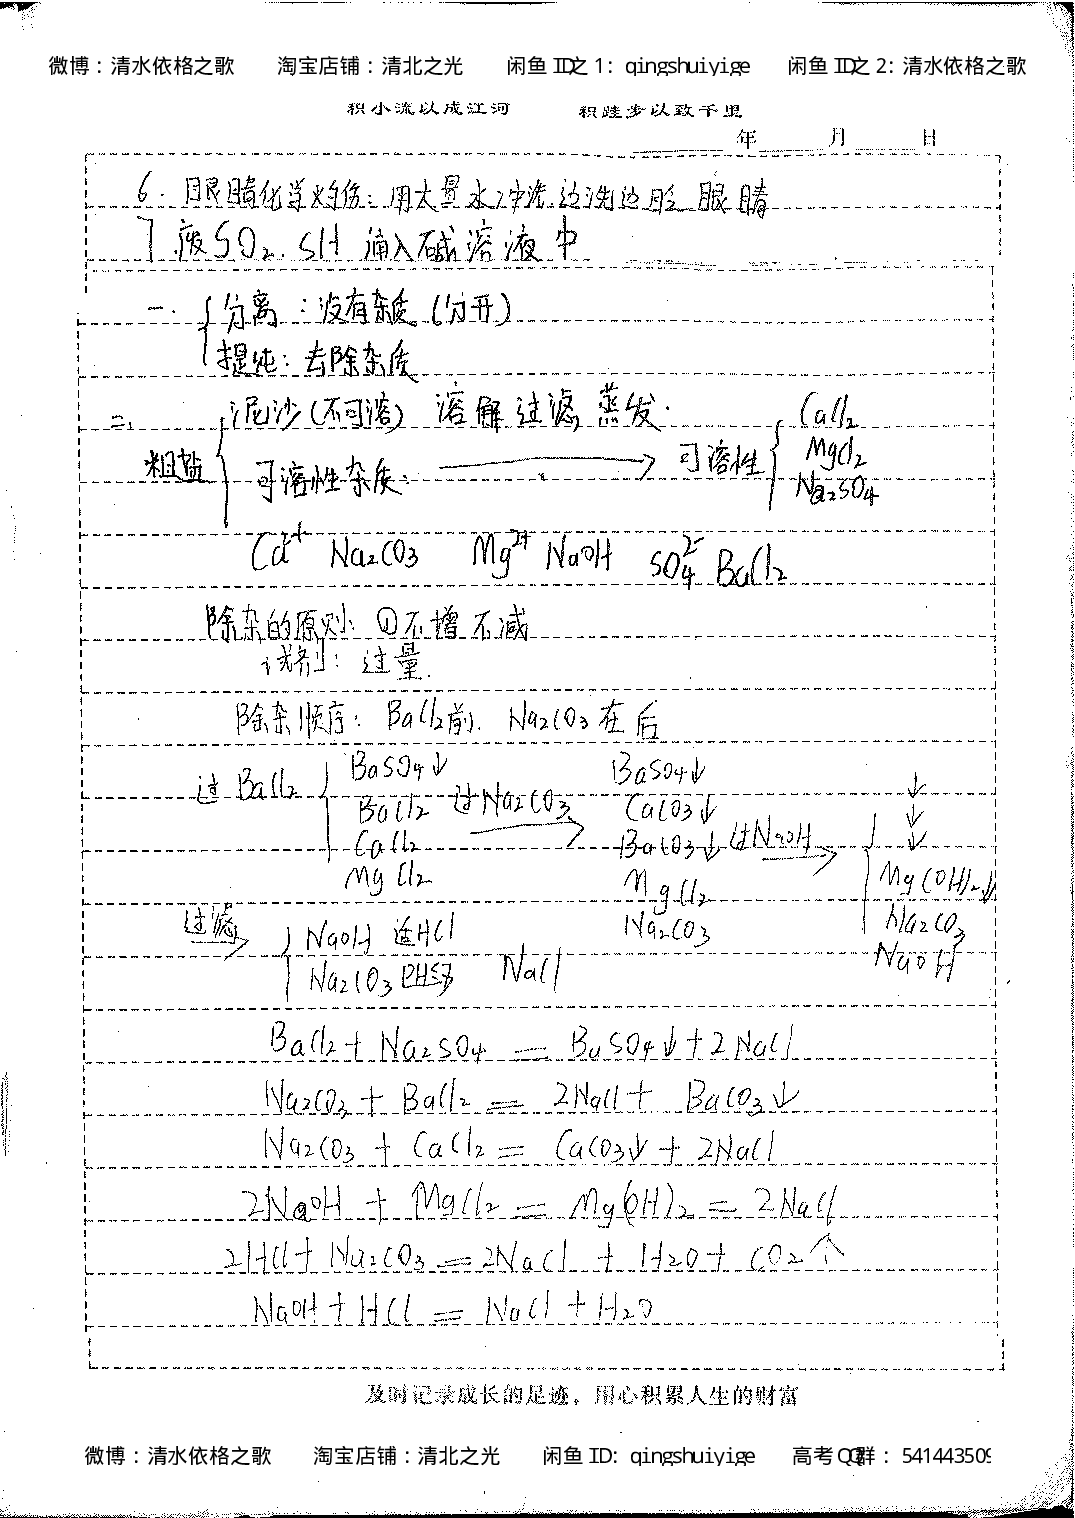 微博：清水依格之歌 淘宝店铺：清北之光 闲鱼 ID之 1: qingshuiyige 闲鱼 ID之 2: 清水依格之歌
积小流以成江河 积跬步以致千里
年 月 日
6. 眼睛化学灼伤：用大量水冲洗边洗边眨眼睛
7. 废SO2. SH 通入碱溶液中
一. { 分离：没有杂质.(分开)
提纯：去除杂质
二. 泥沙(不可溶) 溶解 过滤 蒸发.
粗盐 { 可溶性杂质: → 可溶性 { CaCl2
MgCl2
Na2SO4
Ca2+ Na2CO3 Mg2+ NaOH SO4 2- BaCl2
除杂的原则: ①不增不减
试剂: 过量.
除杂顺序: BaCl2前. Na2CO3在后
过BaCl2 { BaSO4↓ BaSO4↓ ↓
BaCl2 过Na2CO3 → CaCO3↓ ↓
CaCl2 BaCO3↓ 过NaOH → { ↓
MgCl2 MgCl2 Mg(OH)2↓
过滤 → Na2CO3 Na2CO3
{ NaOH 适HCl NaOH
Na2CO3 PH至7 NaCl
BaCl2 + Na2SO4 = BaSO4↓ + 2NaCl
Na2CO3 + BaCl2 = 2NaCl + BaCO3↓
Na2CO3 + CaCl2 = CaCO3↓ + 2NaCl
2NaOH + MgCl2 = Mg(OH)2 = 2NaCl
2HCl + Na2CO3 = 2NaCl + H2O + CO2↑
NaOH + HCl = NaCl + H2O
及时记录成长的足迹，用心积累人生的财富
微博：清水依格之歌 淘宝店铺：清北之光 闲鱼 ID: qingshuiyige 高考 QQ群： 541443509